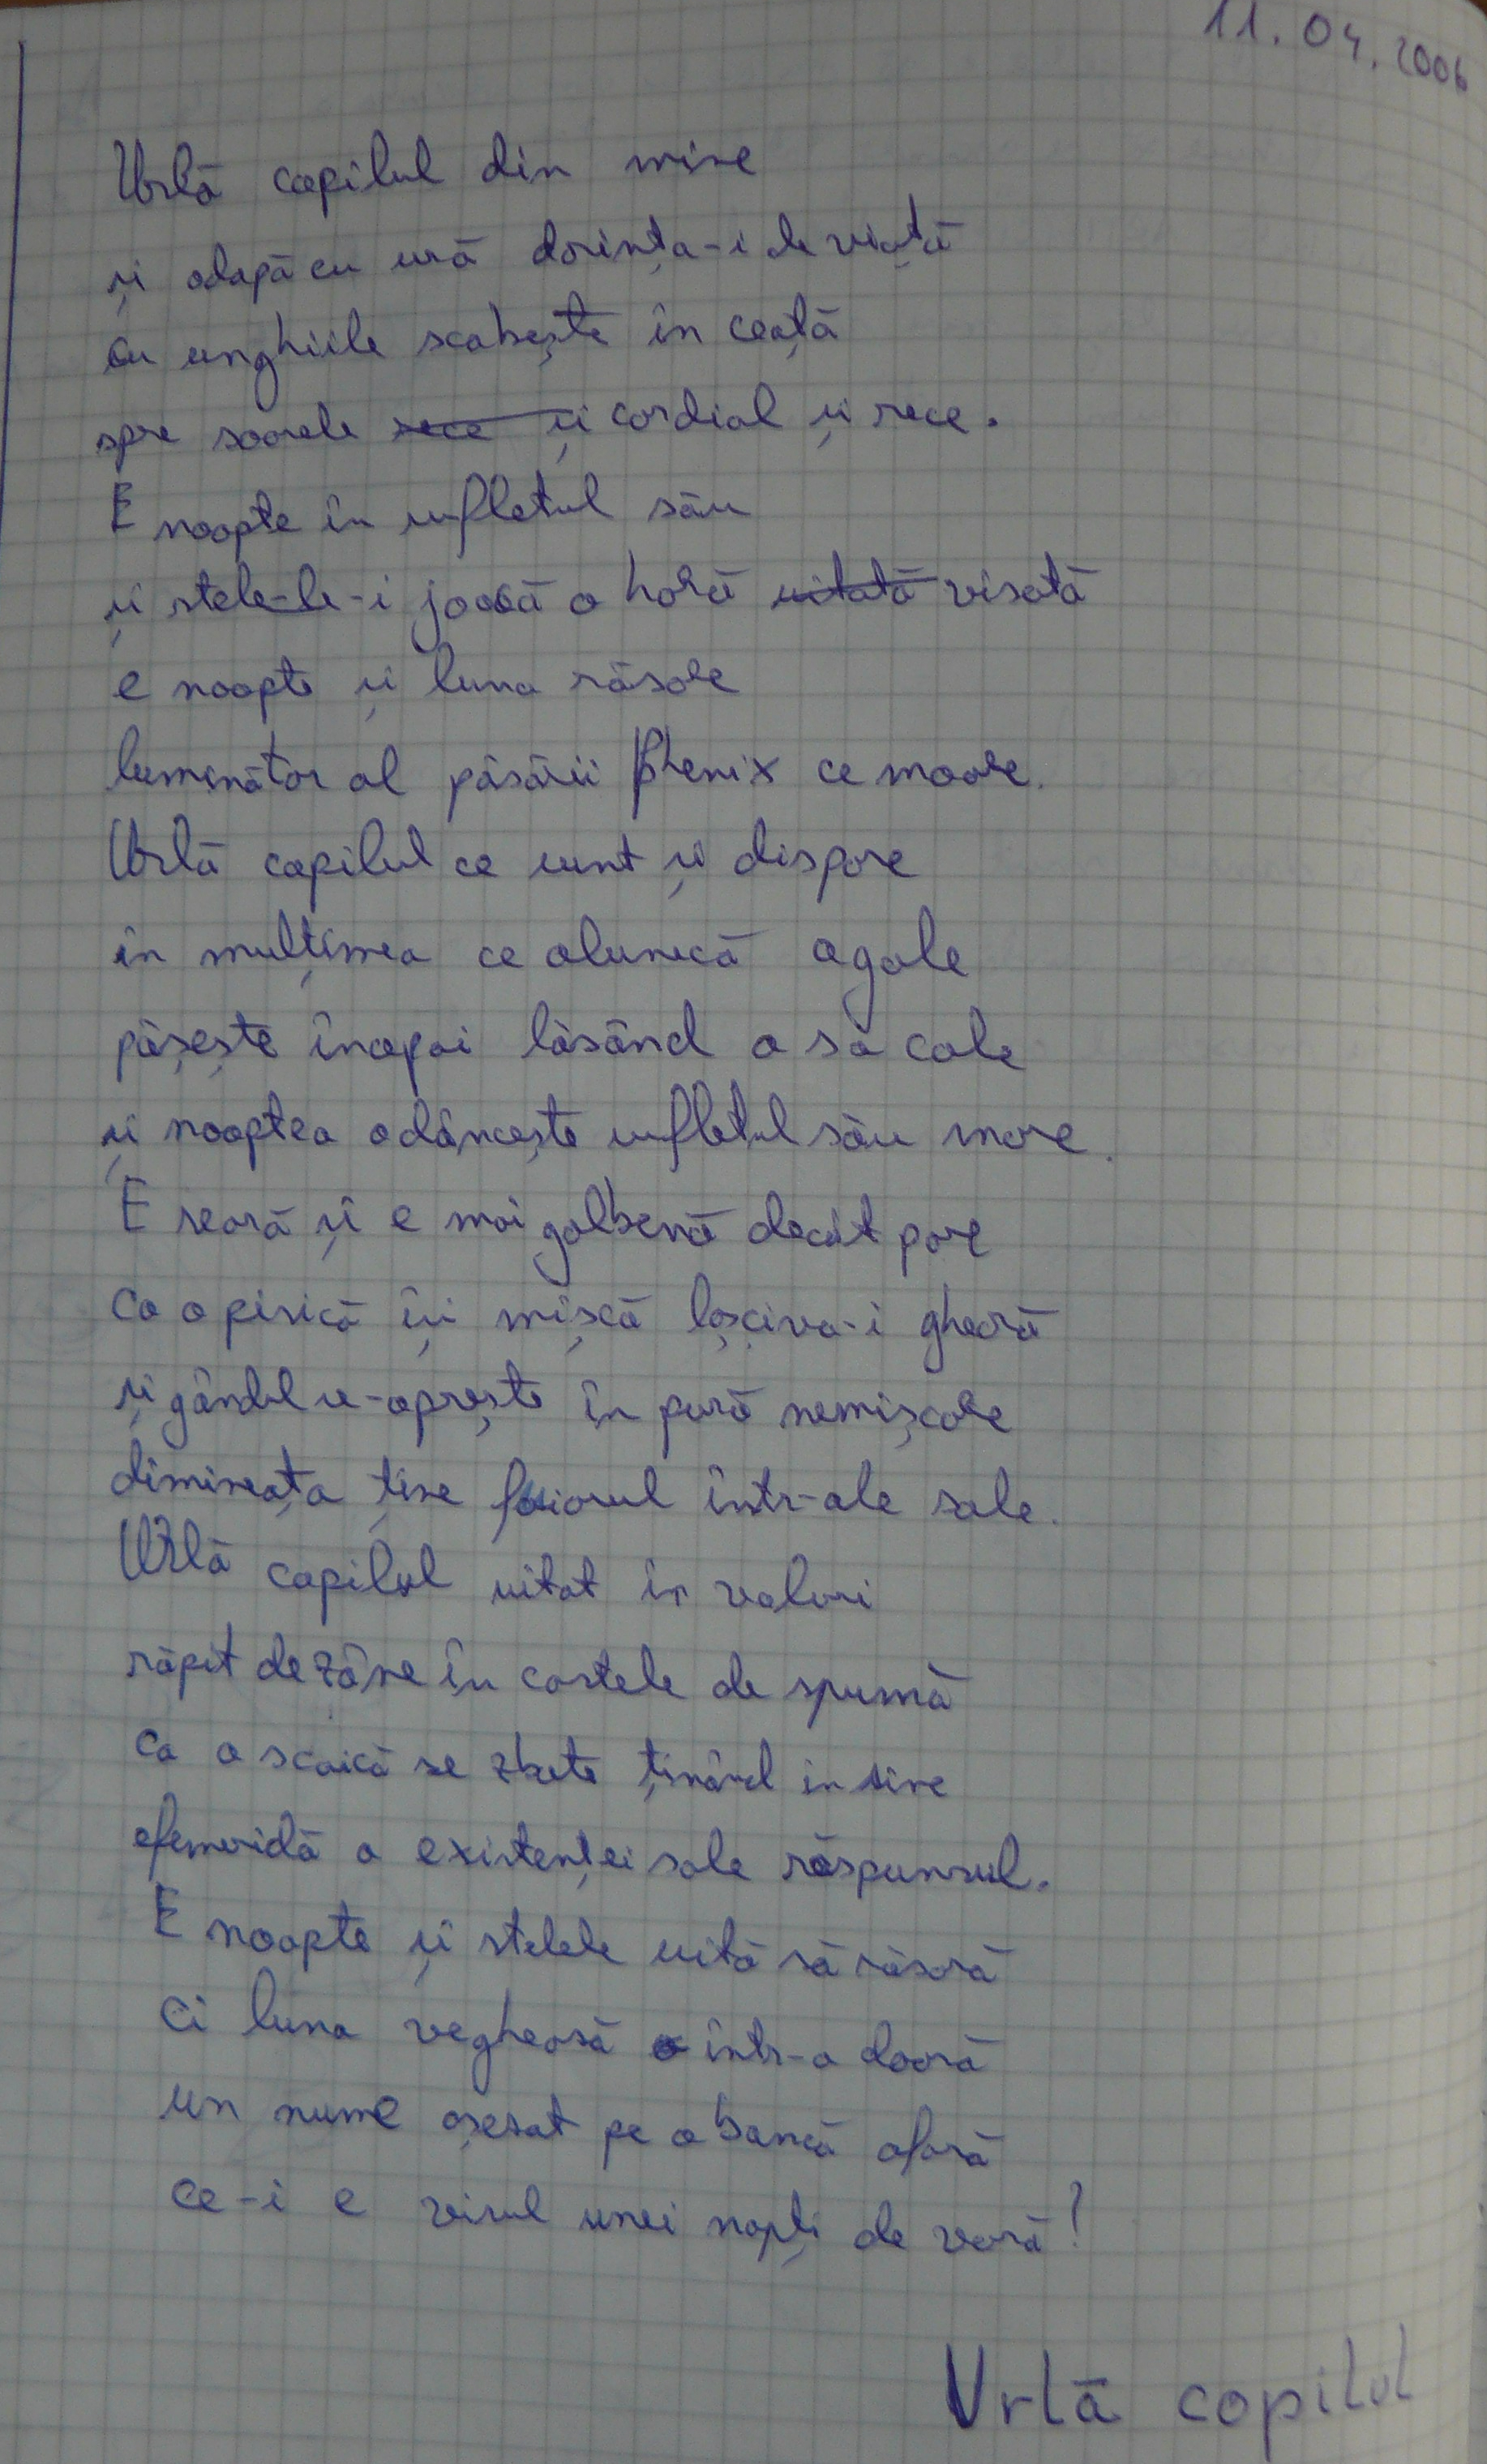 11.04.2006
Urlă copilul din mine
și adapă cu ură dorința-i de viață
cu unghiile scobește în ceață
spre soarele rece și cordial și rece.
E noapte în sufletul său
și stele-le-i joacă o horă uitată visată
e noapte și luna răsare
luminător al păsării Phenix ce moare.
Urlă copilul ce sunt și dispare
în mulțimea ce alunecă agale
pășește înapoi lăsând a sa cale
și noaptea adâncește sufletul său mare.
E seară și e mai galbenă decât pare
ca o pisică își mișcă lasciva-i gheară
și gândul se-oprește în pură nemișcare
dimineața ține fuiorul într-ale sale.
Urlă copilul uitat în valuri
răpit de zâne în castele de spumă
ca o scoică se zbate ținând in sine
efemeridă a existenței sale răspunsul.
E noapte și stelele uită să răsară
Ci luna veghează într-o doară
un nume așezat pe o bancă afară
ce-i e visul unei nopți de vară!
Urlă copilul